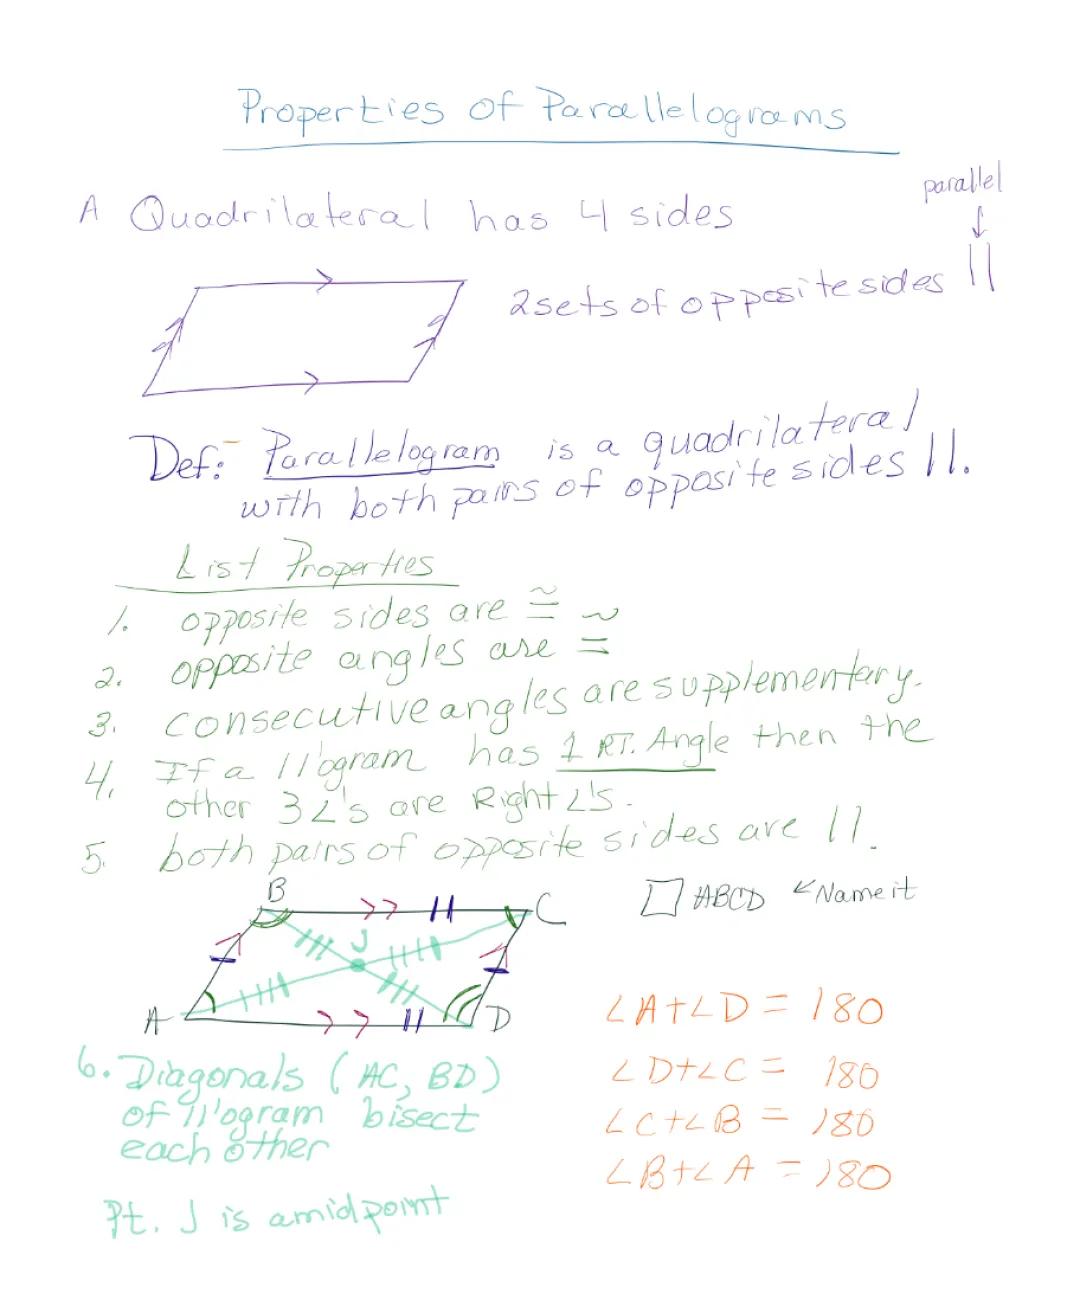 Properties of Parallelograms
parallel
↓
A Quadrilateral has 4 sides
2 sets of opposite sides ||
Def: Parallelogram is a quadrilateral
with both pairs of opposite sides ||.
List Properties
1. opposite sides are ≅
2. opposite angles are ≅
3. consecutive angles are supplementary.
4. If a ||'ogram has 1 RT. Angle then the
other 3 ∠'s are Right ∠'s.
5. both pairs of opposite sides are ||.
B
C
J
A
D
▱ ABCD ↙ Name it
∠A+∠D = 180
∠D+∠C = 180
∠C+∠B = 180
∠B+∠A = 180
6. Diagonals (AC, BD)
of ||'ogram bisect
each other
Pt. J is a midpoint